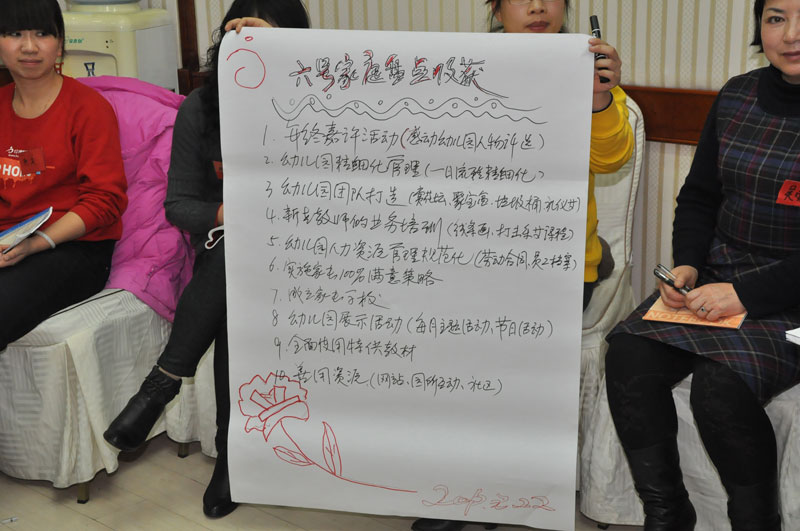 六号家庭盘点收获
1. 年终嘉许活动(感动幼儿园人物评选)
2. 幼儿园精细化管理(一日流程精细化)
3 幼儿园团队打造(聚宝盆、垃圾桶、礼仪
4. 新老教师的业务培训(
5. 幼儿园人力资源管理规范化(劳动合同、员工档案)
6. 实施家长100%满意策略
7. 成立家长
8 幼儿园展示活动(每月主题活动、节日活动)
9. 全面使用特供教材
10. 善用资源(网站、园所互动、社区)
22